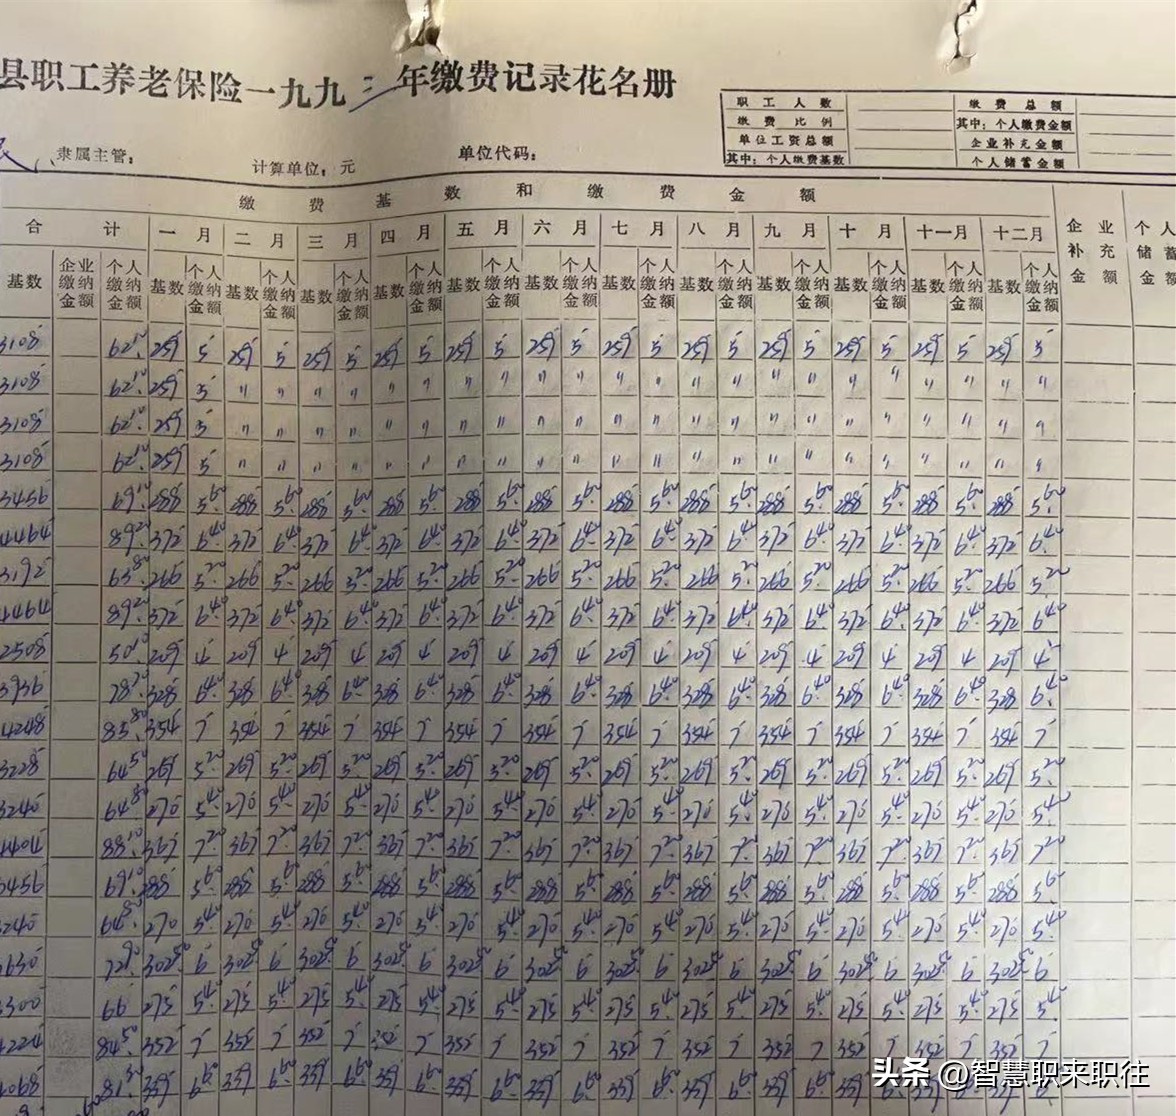 县职工养老保险一九九三年缴费记录花名册
职工人数 缴费总额
缴费比例 其中：个人缴费金额
单位工资总额 企业补充金额
其中：个人缴费基数 个人储蓄金额
隶属主管： 计算单位：元 单位代码：
缴费基数和缴费金额
合计 一月 二月 三月 四月 五月 六月 七月 八月 九月 十月 十一月 十二月 企业补充金额 个人储蓄金额
基数 企业缴纳金额 个人缴纳金额 基数 个人缴纳金额 基数 个人缴纳金额 基数 个人缴纳金额 基数 个人缴纳金额 基数 个人缴纳金额 基数 个人缴纳金额 基数 个人缴纳金额 基数 个人缴纳金额 基数 个人缴纳金额 基数 个人缴纳金额 基数 个人缴纳金额 基数 个人缴纳金额
3108 62.10 259 5 259 5 259 5 259 5 259 5 259 5 259 5 259 5 259 5 259 5 259 5 259 5
3108 62.10 259 5 〃 〃 〃 〃 〃 〃 〃 〃 〃 〃 〃 〃 〃 〃 〃 〃 〃 〃 〃 〃 〃 〃
3108 62.10 259 5 〃 〃 〃 〃 〃 〃 〃 〃 〃 〃 〃 〃 〃 〃 〃 〃 〃 〃 〃 〃 〃 〃
3108 62.10 259 5 〃 〃 〃 〃 〃 〃 〃 〃 〃 〃 〃 〃 〃 〃 〃 〃 〃 〃 〃 〃 〃 〃
3456 69.10 288 5.60 288 5.60 288 5.60 288 5.60 288 5.60 288 5.60 288 5.60 288 5.60 288 5.60 288 5.60 288 5.60 288 5.60
4464 89.20 372 6.40 372 6.40 372 6.40 372 6.40 372 6.40 372 6.40 372 6.40 372 6.40 372 6.40 372 6.40 372 6.40 372 6.40
3192 63.80 266 5.20 266 5.20 266 5.20 266 5.20 266 5.20 266 5.20 266 5.20 266 5.20 266 5.20 266 5.20 266 5.20 266 5.20
4464 89.20 372 6.40 372 6.40 372 6.40 372 6.40 372 6.40 372 6.40 372 6.40 372 6.40 372 6.40 372 6.40 372 6.40 372 6.40
2508 50.10 209 4 209 4 209 4 209 4 209 4 209 4 209 4 209 4 209 4 209 4 209 4 209 4
3936 78.70 328 6.40 328 6.40 328 6.40 328 6.40 328 6.40 328 6.40 328 6.40 328 6.40 328 6.40 328 6.40 328 6.40 328 6.40
4248 85.80 354 7 354 7 354 7 354 7 354 7 354 7 354 7 354 7 354 7 354 7 354 7 354 7
3228 64.50 269 5.20 269 5.20 269 5.20 269 5.20 269 5.20 269 5.20 269 5.20 269 5.20 269 5.20 269 5.20 269 5.20 269 5.20
3240 64.80 270 5.40 270 5.40 270 5.40 270 5.40 270 5.40 270 5.40 270 5.40 270 5.40 270 5.40 270 5.40 270 5.40 270 5.40
4404 88.10 367 7.20 367 7.20 367 7.20 367 7.20 367 7.20 367 7.20 367 7.20 367 7.20 367 7.20 367 7.20 367 7.20 367 7.20
3456 69.10 288 5.60 288 5.60 288 5.60 288 5.60 288 5.60 288 5.60 288 5.60 288 5.60 288 5.60 288 5.60 288 5.60 288 5.60
3240 64.80 270 5.40 270 5.40 270 5.40 270 5.40 270 5.40 270 5.40 270 5.40 270 5.40 270 5.40 270 5.40 270 5.40 270 5.40
3630 302.50 6 302.50 6 302.50 6 302.50 6 302.50 6 302.50 6 302.50 6 302.50 6 302.50 6 302.50 6 302.50 6 302.50 6
3300 66 275 5.40 275 5.40 275 5.40 275 5.40 275 5.40 275 5.40 275 5.40 275 5.40 275 5.40 275 5.40 275 5.40 275 5.40
4224 84.50 352 7 352 7 352 7 352 7 352 7 352 7 352 7 352 7 352 7 352 7 352 7 352 7
4068 81.30 339 6.60 339 6.60 339 6.60 339 6.60 339 6.60 339 6.60 339 6.60 339 6.60 339 6.60
头条 @智慧职来职往